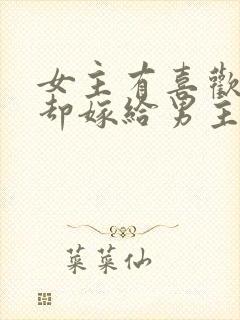 女主有喜歡
却嫁給男主
菜菜仙